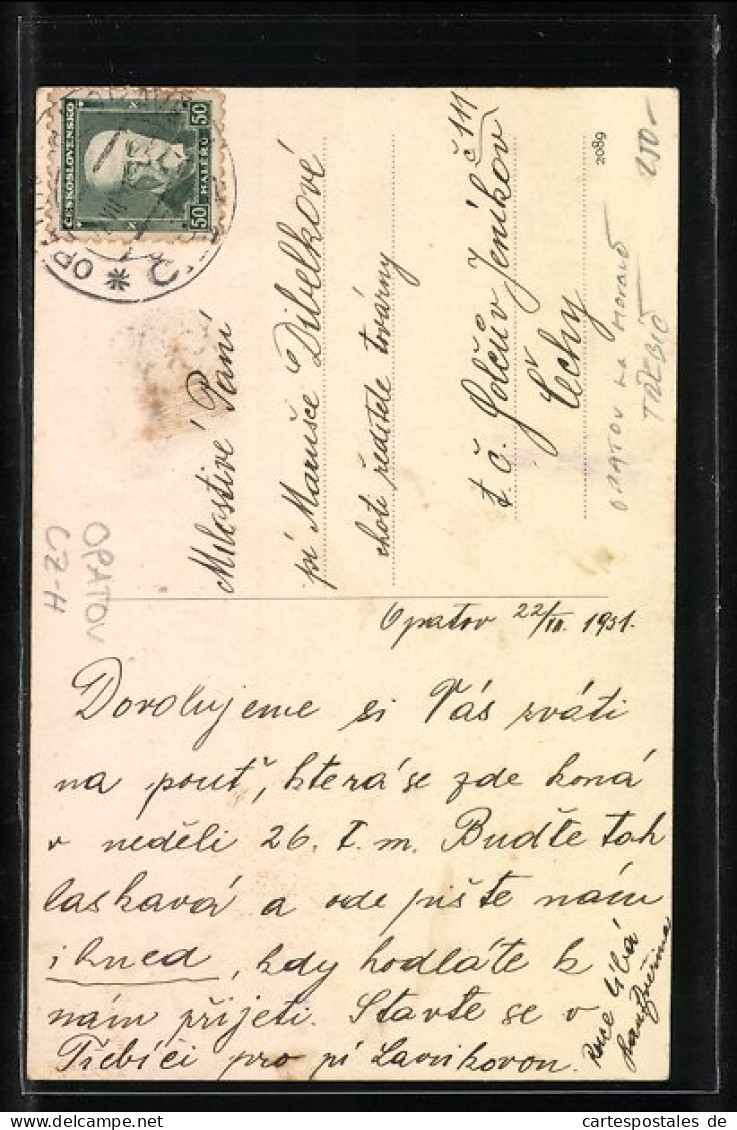 ČESKOSLOVENSKO
50 HALÉRŮ 50
Milostivé Paní
pí Marušce Dibelkové
choti ředitele továrny
t. č. Golčův Jeníkov č 111
Čechy
2089
250-
OPATOV NA MORAVĚ
TŘEBÍČ
OPATOV
CZ-H
Opatov 22/VII. 1931.
Dovolujeme si Vás zváti
na pouť, která se zde koná
v neděli 26. t. m. Buďte tak
laskavá a odepište nám
ihned, kdy hodláte k
nám přijeti. Stavte se v
Třebíči pro pí
Ruce líbá
www.ansichtskartenversand.com
cartespostales de